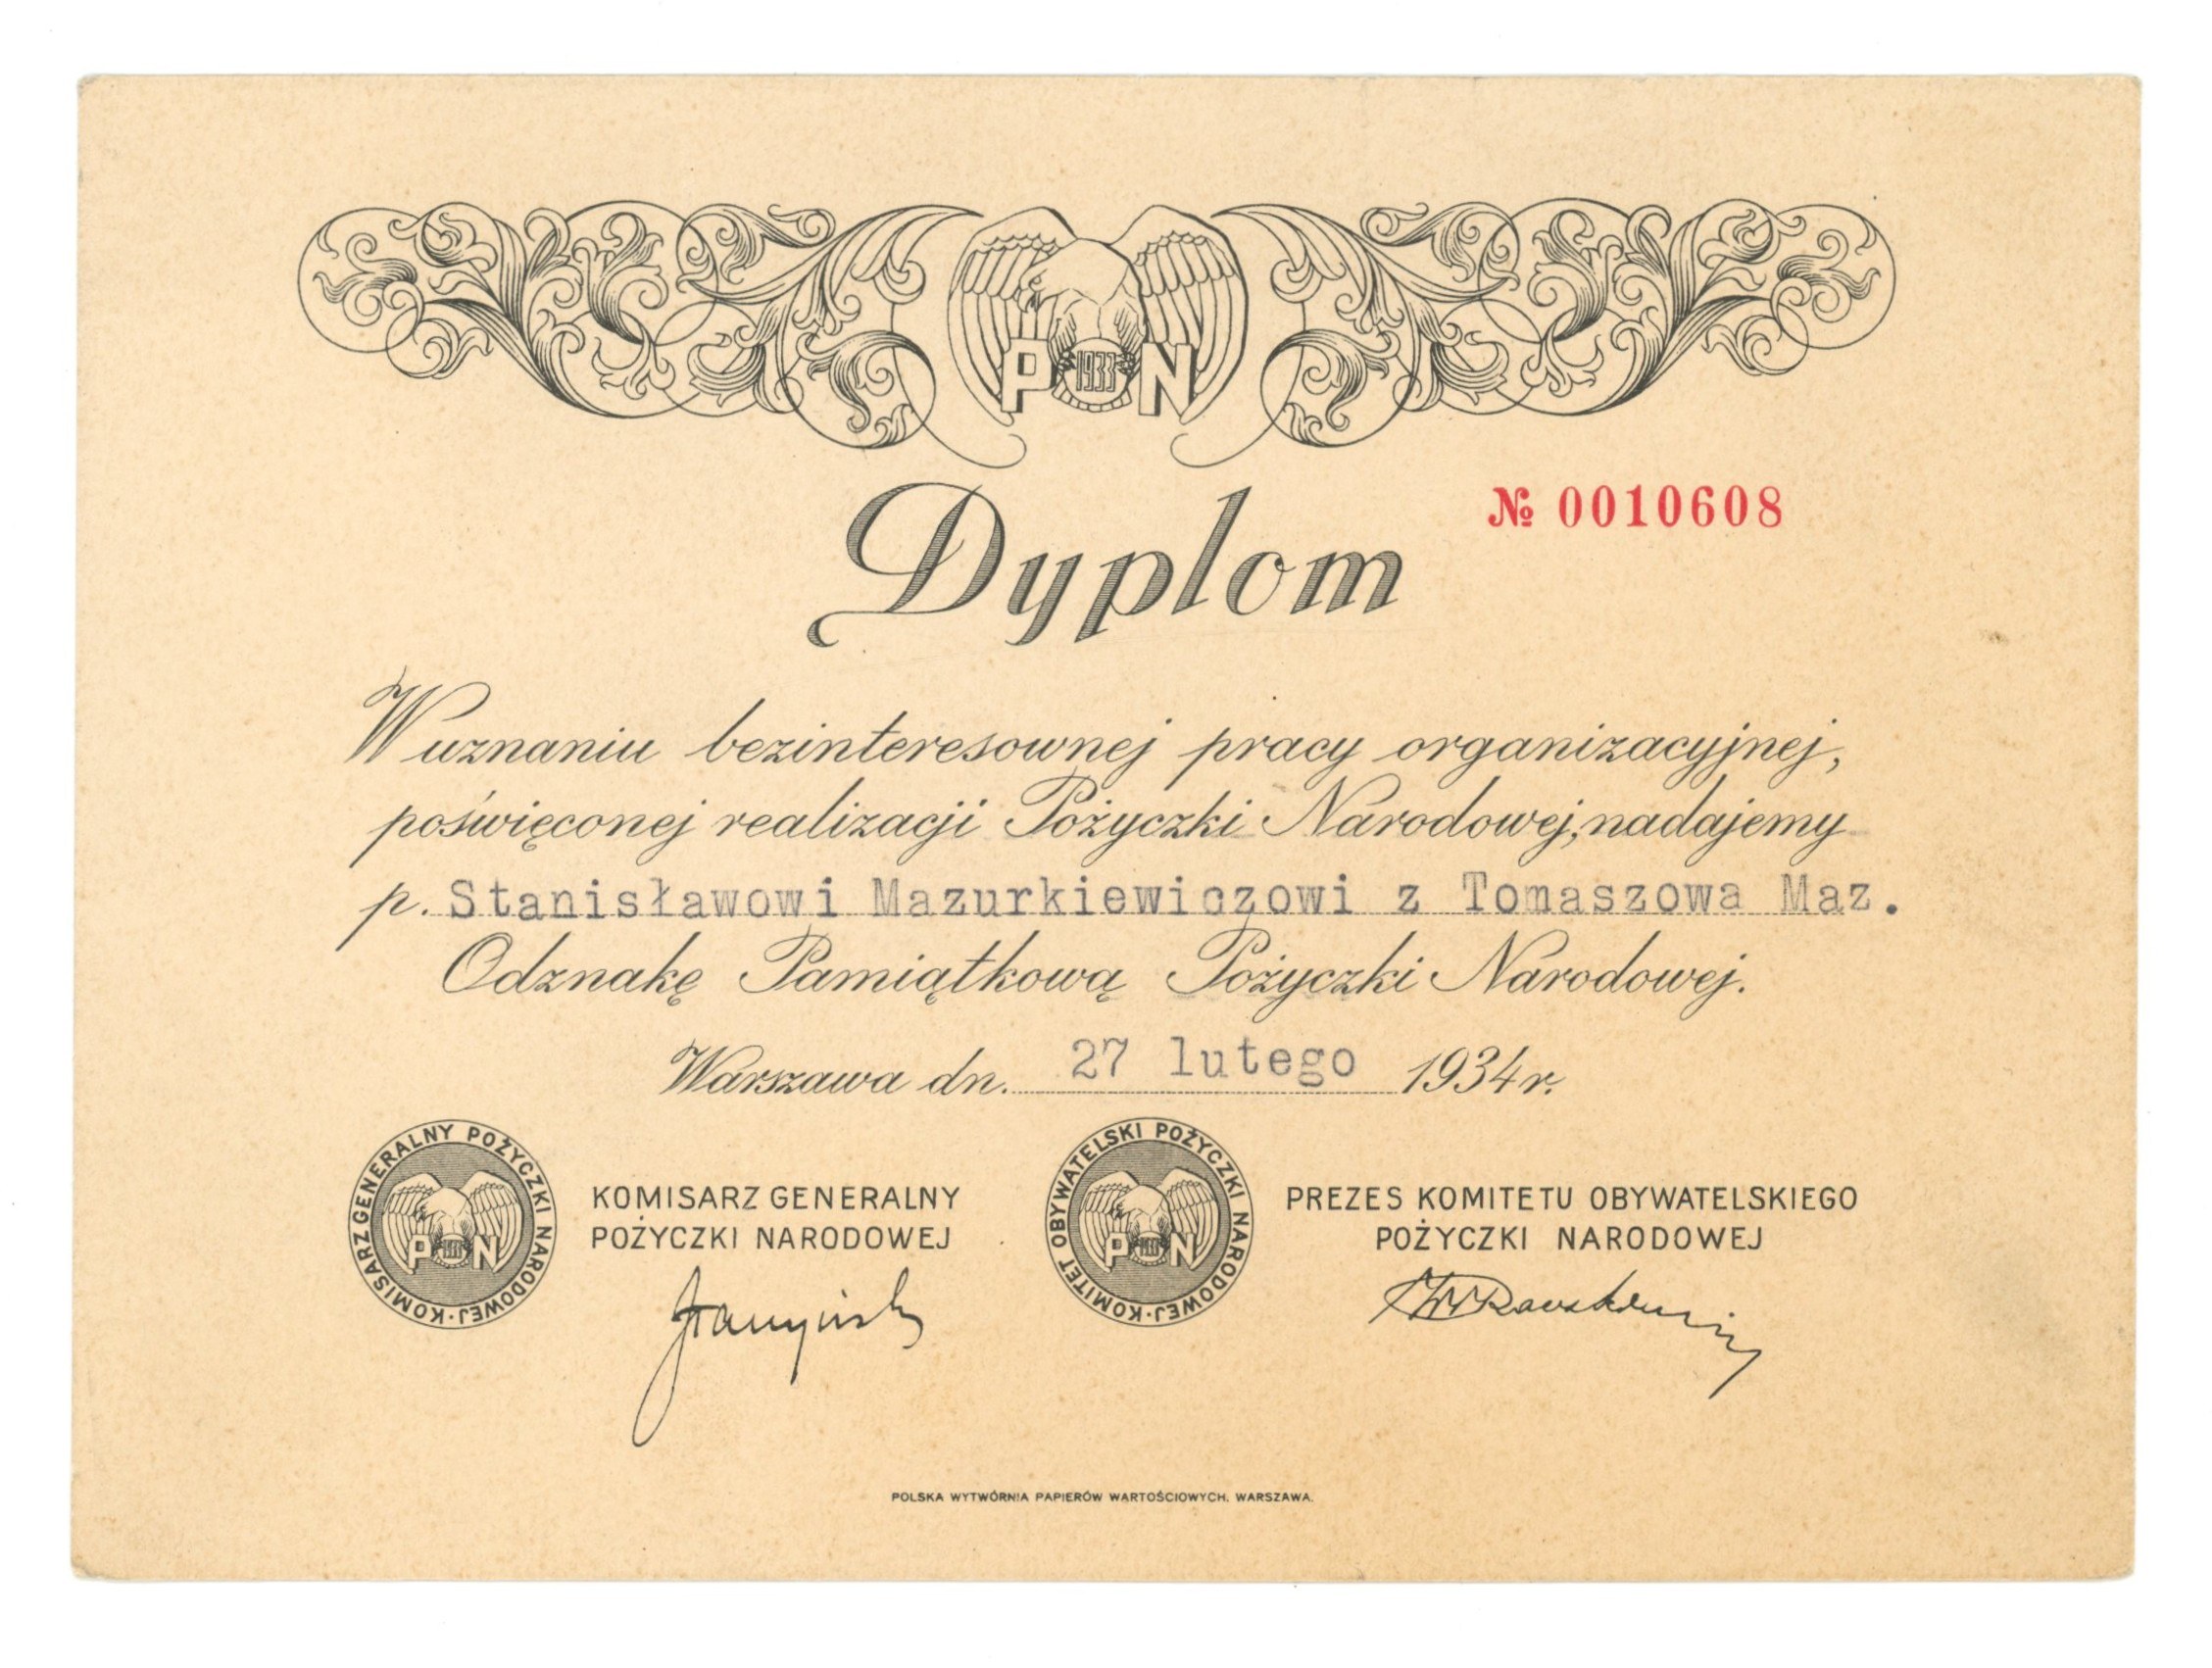 P 1933 N
Dyplom
№ 0010608
W uznaniu bezinteresownej pracy organizacyjnej,
poświęconej realizacji Pożyczki Narodowej, nadajemy
p. Stanisławowi Mazurkiewiczowi z Tomaszowa Maz.
Odznakę Pamiątkową Pożyczki Narodowej.
Warszawa dn. 27 lutego 1934 r.
KOMISARZ GENERALNY POŻYCZKI NARODOWEJ·
P 1933 N
KOMISARZ GENERALNY
POŻYCZKI NARODOWEJ
KOMITET OBYWATELSKI POŻYCZKI NARODOWEJ·
P 1933 N
PREZES KOMITETU OBYWATELSKIEGO
POŻYCZKI NARODOWEJ
POLSKA WYTWÓRNIA PAPIERÓW WARTOŚCIOWYCH. WARSZAWA.